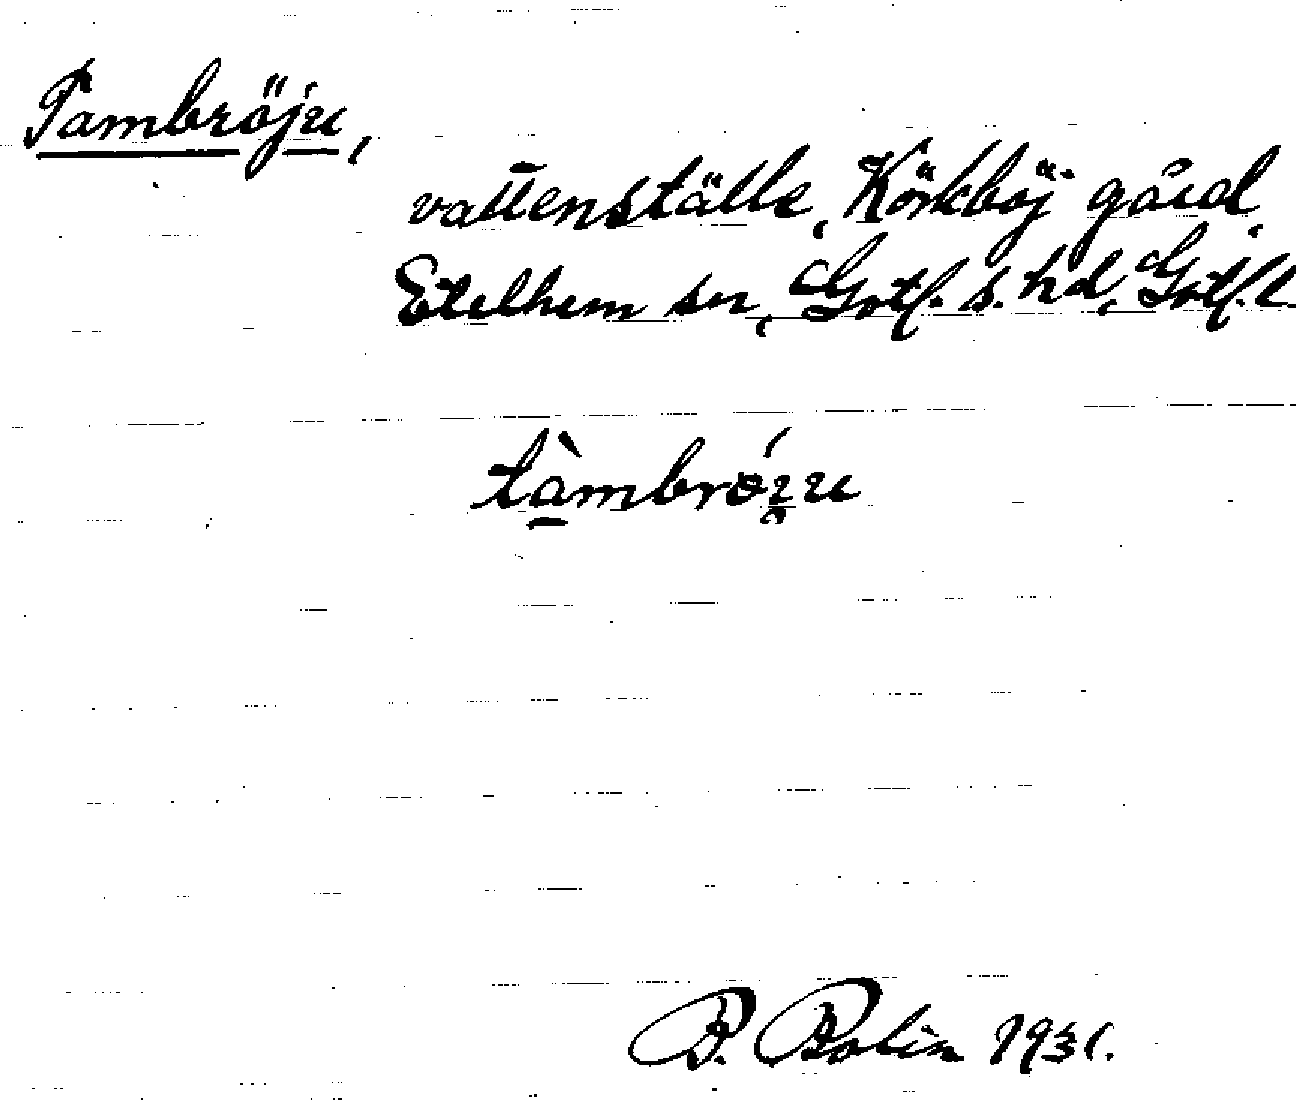 Tambröju,
vattenställe, Körkböj gård
Etelhem sn, Gotl. s. hd, Gotl. l.
tàmbröi̯u
B. Bolin 1931.